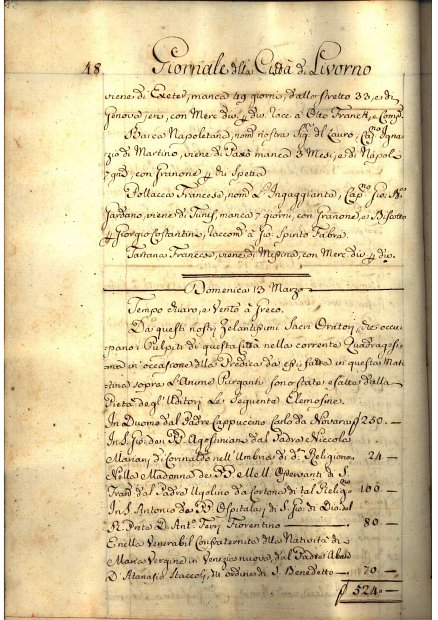 48. Giornale della Città di Livorno
viene di Exeter, manca 49 giorni, dallo stretto 33, e di
Genova jeri, con Merc. div. p. div. racc. a Otto Franck, e Comp.
Barca Napoletana, nom. nostra Sig. del Lauro, Cap.no Igna-
zio di Martino, viene di manca 3 Mesi, e di Napol
7 gni, con Granone p. di Spetta
Pollacca Francese, nom. L'Ingaggianta, Cap.no Gio. B.
Jardano, viene di Tunis, manca 7 giorni, con Granone, e Biscotto
p. Giorgio Costantini, raccom. a Gio. Spirito Fabre.
Tartana Francese, viene di Messina, con Merc. div. p. div.
Domenica 13 Marzo
Tempo chiaro, e Vento à Greco.
Da questi nostri Zelantissimi Sacri Oratori, che occu-
pano i Pulpiti di questa Città nella corrente Quadragesi-
ma in occasione della Predica da essi fatta in questa Mat-
tina sopra L'Anime Purganti sono state esatte dalla
Pietà degl'Uditori Le Seguenti Elemosine.
In Duomo dal Padre Cappuccino Carlo da Novara 250. —
In S. Gio. de PP. Agostiniani dal Padre Niccola
Mariani di Corinaldo nell'Umbria di d. Religione 24 —
Nella Madonna de PP. M. Osservanti di S.
Fran. dal Padre Ugolino da Cortona di tal Relig.ne 100 —
In S. Antonio de PP. Ospitalari di S. Gio. di Dio, dal
Prete D. Ant.o Terri Fiorentino — 80 —
E nella Venerabil Confraternita della Natività di
Maria Vergine in Venezia nuova, dal Padre Abate
D. Atanasio Staccoli, dell'ordine di S. Benedetto — 70 —
524. —